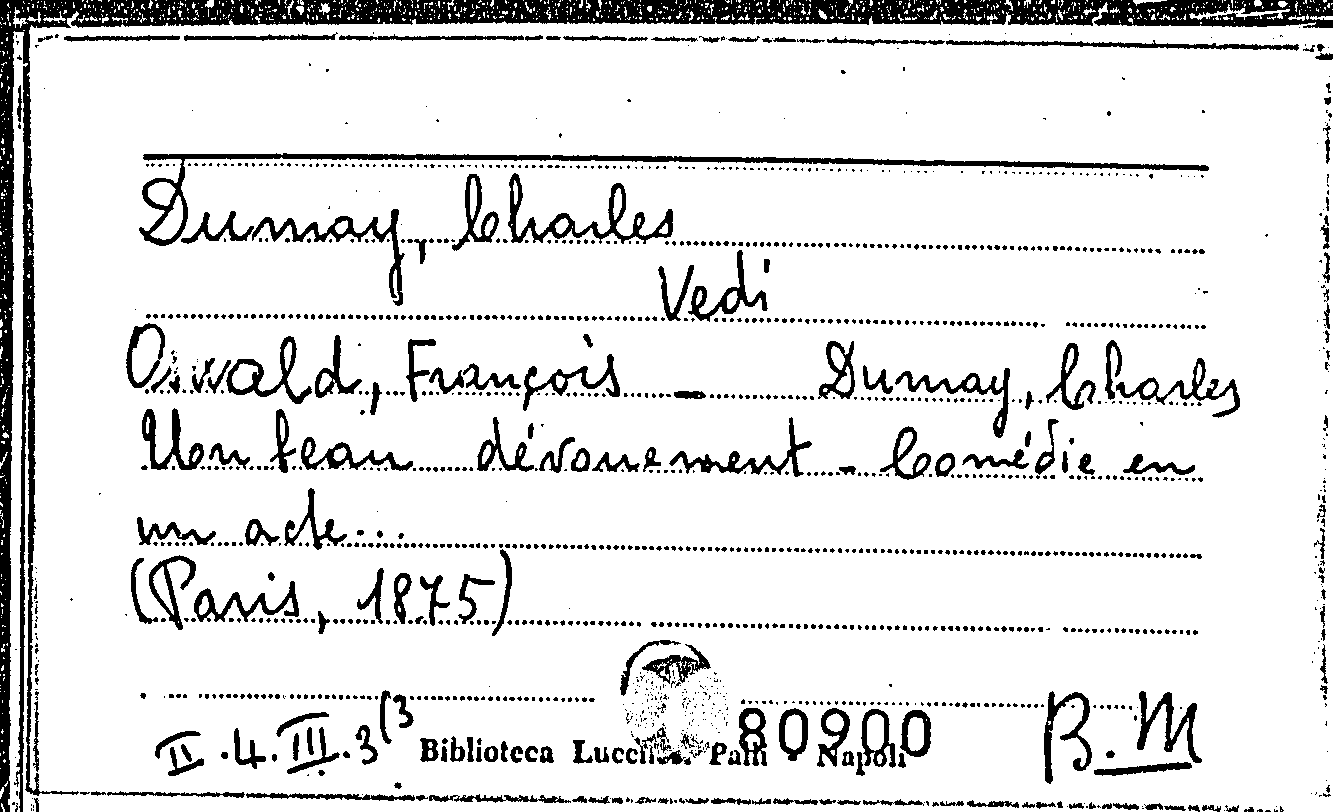 Dumay, Charles
Vedi
Oswald, François - Dumay, Charles
Un beau dévouement - Comédie en
un acte...
(Paris, 1875)
II.4.III.3(3 Biblioteca Lucchesi Palli - Napoli 80900 B.M